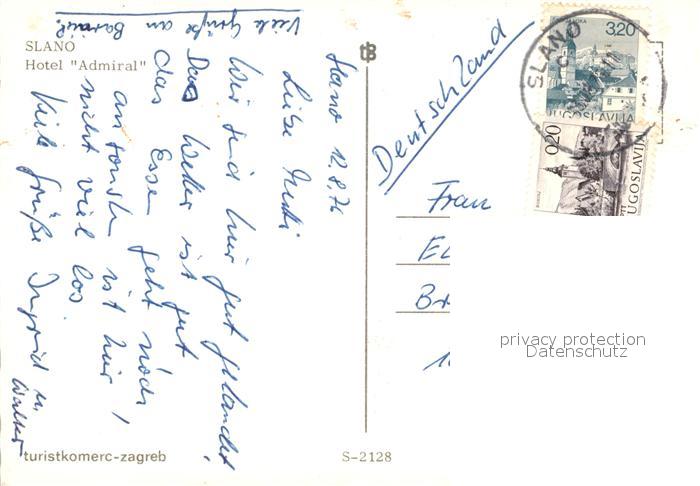 SLANO
Hotel "Admiral"
Slano 12.8.76
Liebe Mutti
Wir sind hier gut gelandet.
Das Wetter ist gut
das Essen geht noch,
ansonsten ist hier
nicht viel los
Viele Grüße Ingrid u.
Walter
Viele Grüße an
Deutschland
Frau
3,20
JUGOSLAVIJA
SLANO
0,20
JUGOSLAVIJA
privacy protection
Datenschutz
turistkomerc-zagreb
S-2128